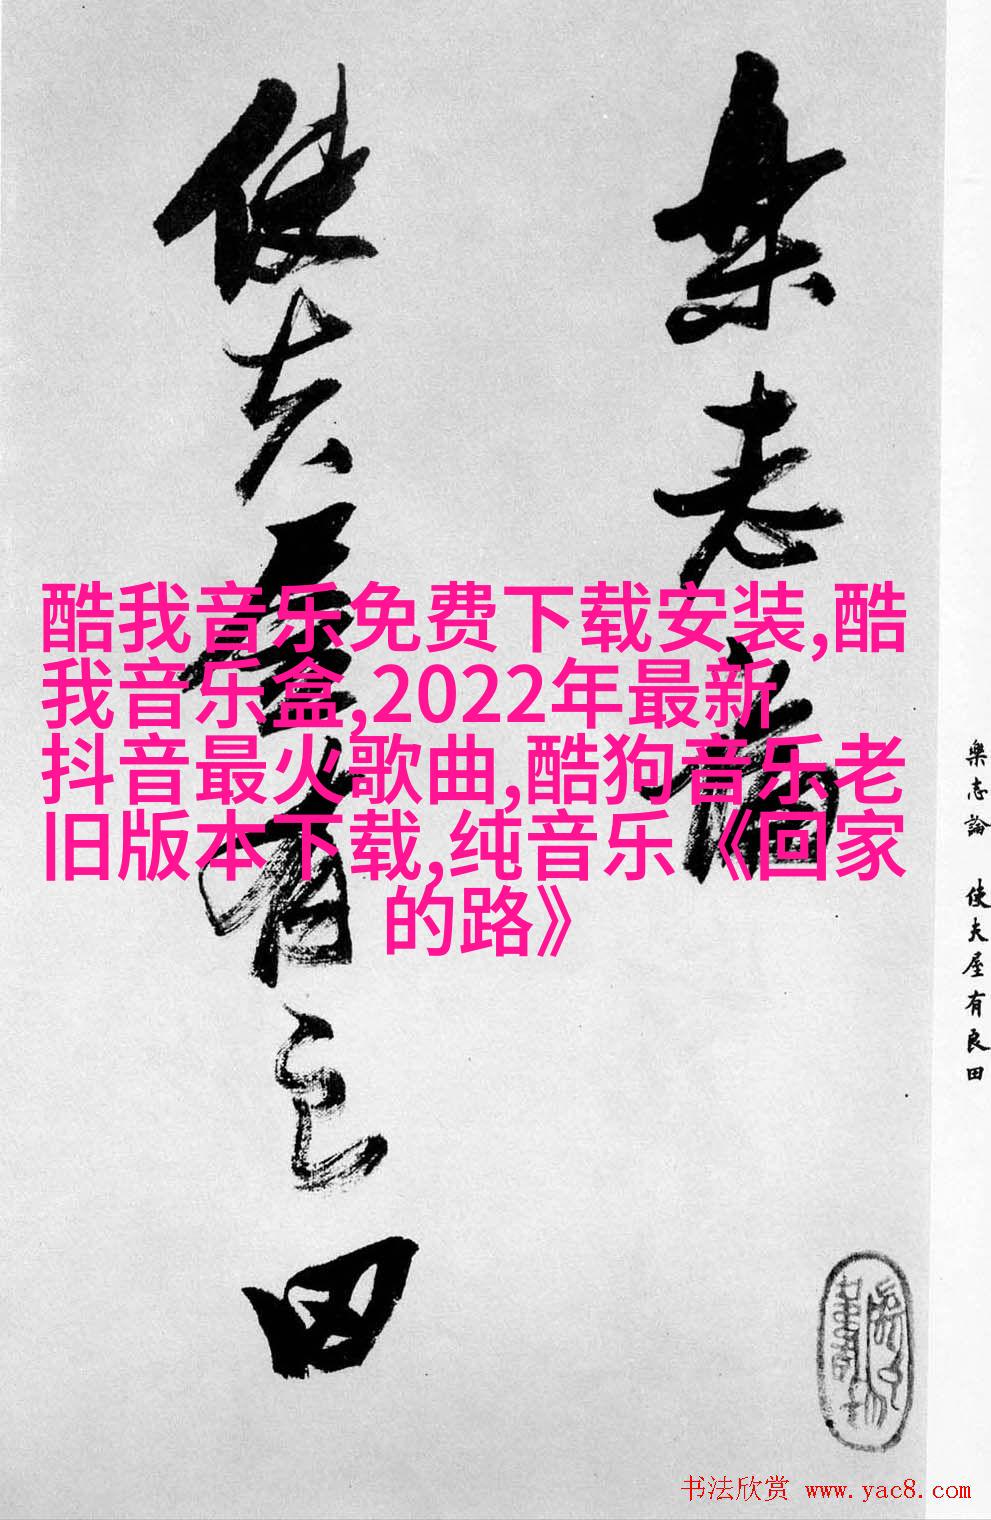 樂志論
使夫屋有良田
酷我音乐免费下载安装,酷
我音乐盒,2022年最新
抖音最火歌曲,酷狗音乐老
旧版本下载,纯音乐《回家
的路》
樂志論 使夫屋有良田
书法欣赏 www.yac8.com